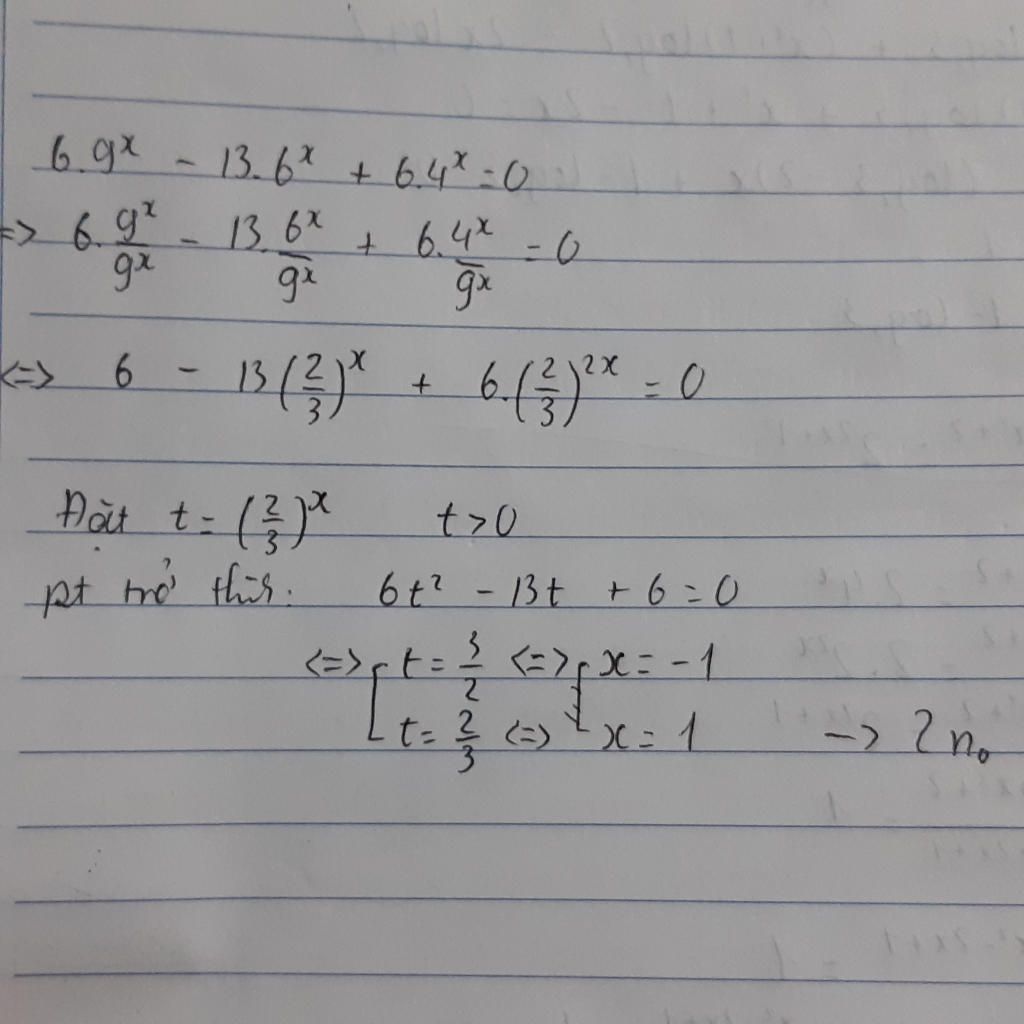 6.9^x - 13.6^x + 6.4^x = 0
=> 6.\frac{9^x}{9^x} - 13.\frac{6^x}{9^x} + 6.\frac{4^x}{9^x} = 0
<=> 6 - 13(\frac{2}{3})^x + 6.(\frac{2}{3})^{2x} = 0
Đặt t = (\frac{2}{3})^x t > 0
pt trở thành: 6t² - 13t + 6 = 0
<=> [ t = \frac{3}{2} <=> [ x = -1
t = \frac{2}{3} <=> x = 1 -> 2 n₀